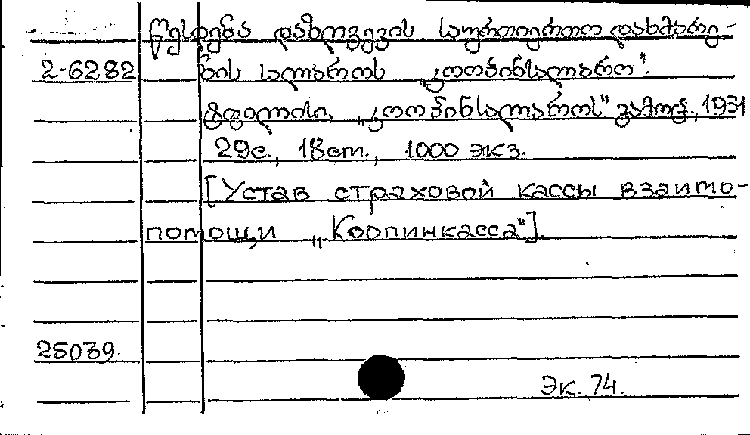 წესდება დაზღვევის საურთიერთო დახმარე-
2-6282 ბის სალაროს „კოოპინსალარო".
ტფილისი, „კოოპინსალაროს" გამოც., 1931
29с., 18см., 1000 экз.
[Устав страховой кассы взаимо-
помощи „Коопинкасса"].
25039.
Эк. 74.